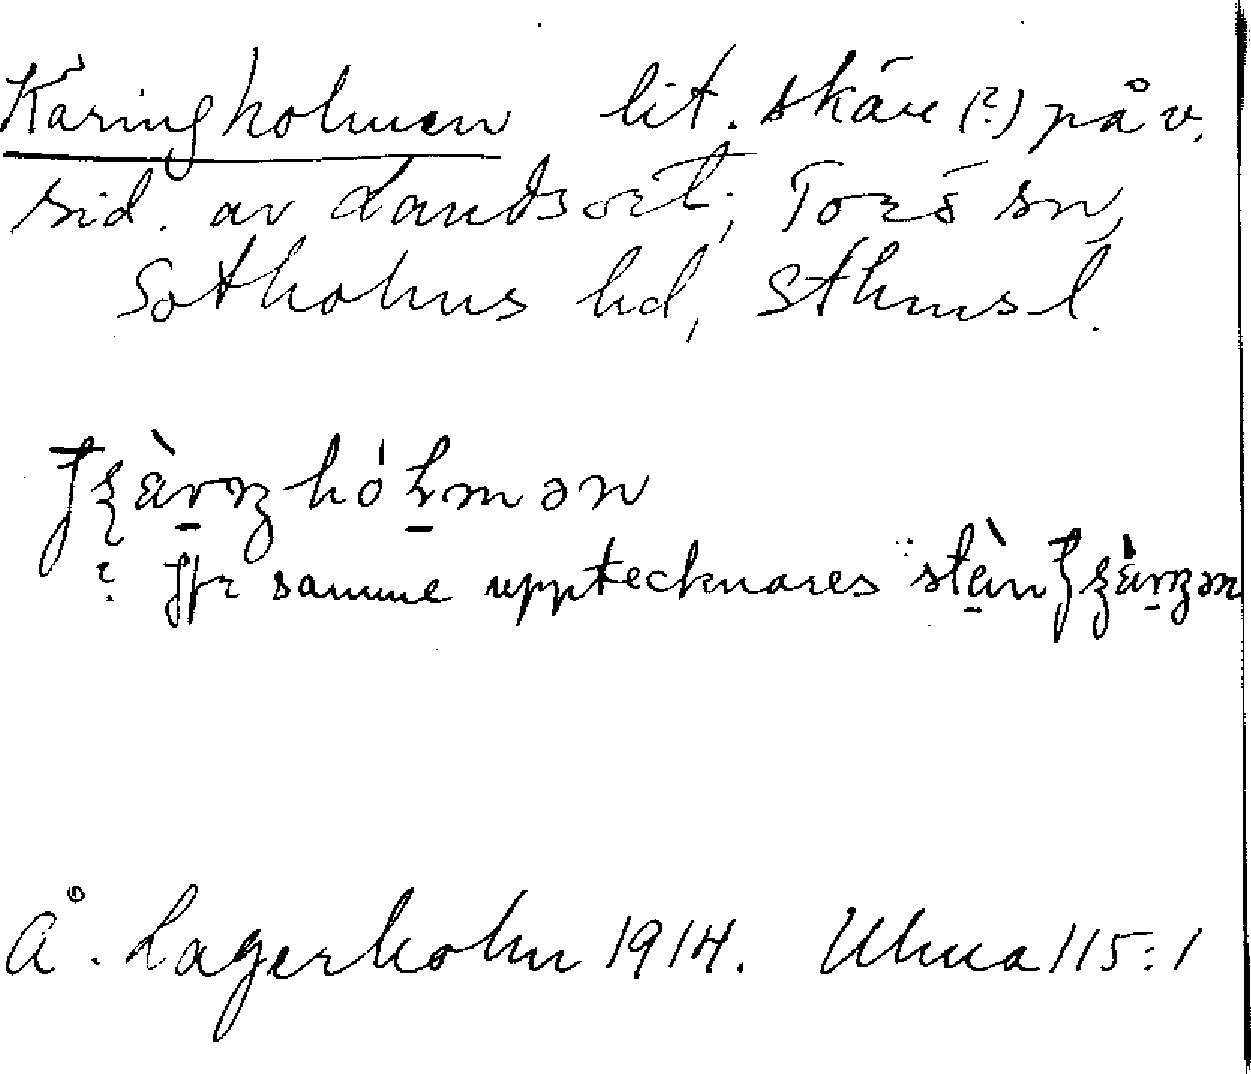 Käringholmen lit. skär (?) på v.
sid. av Landsort, Torö sn,
Sotholms hd, Sthms l.
? Jfr samme upptecknares
Å. Lagerholm 1914. Ulma 115:1